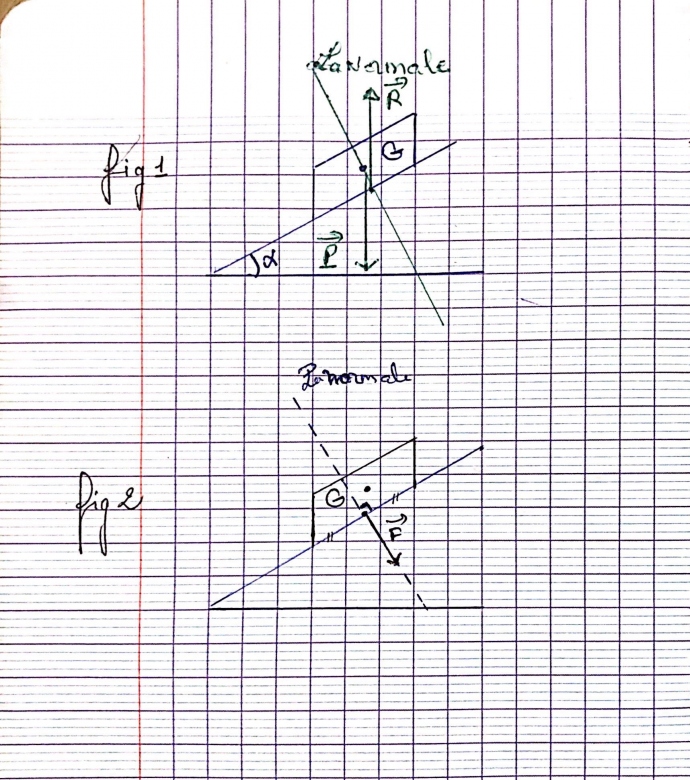 La Normale
R
G
fig 1
P
α
La normale
G
fig 2
F